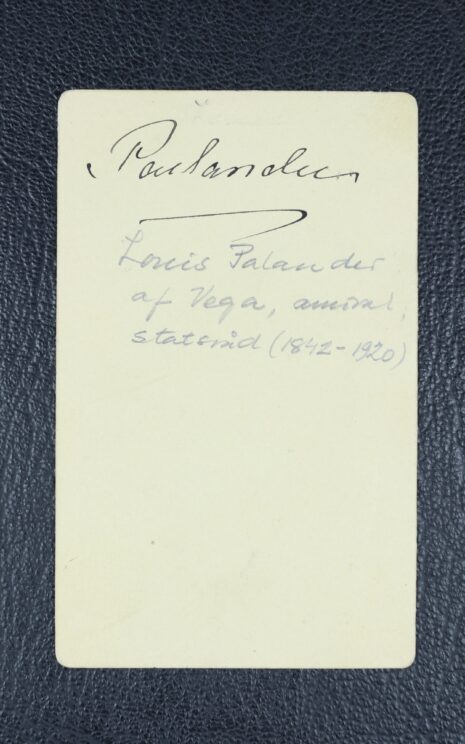 Palander
Louis Palander
af Vega, amiral,
statsråd (1842-1920)